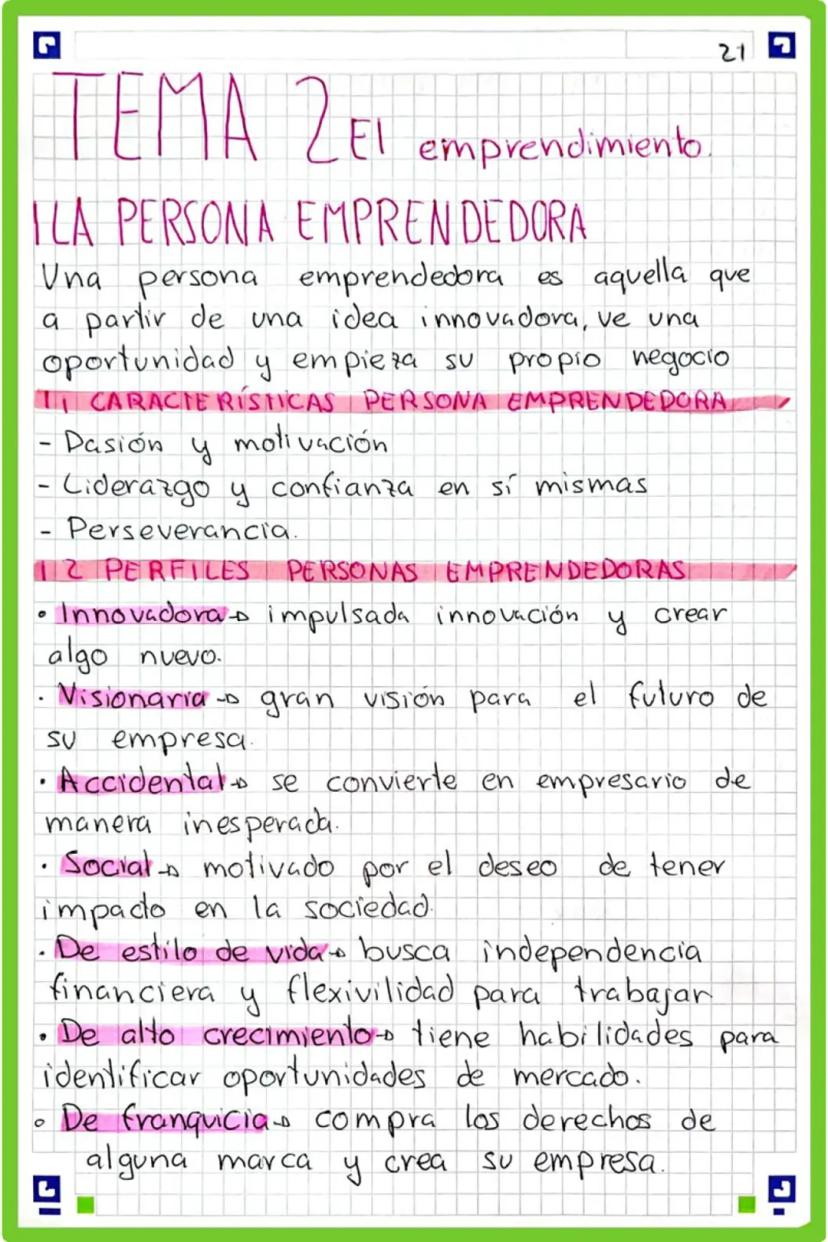 21
TEMA 2 El emprendimiento.
1 LA PERSONA EMPRENDEDORA
Una persona emprendedora es aquella que
a partir de una idea innovadora, ve una
oportunidad y empieza su propio negocio
1 1 CARACTERÍSTICAS PERSONA EMPRENDEDORA
- Pasión y motivación
- Liderazgo y confianza en sí mismas
- Perseverancia.
1 2 PERFILES PERSONAS EMPRENDEDORAS
• Innovadora → impulsada innovación y crear
algo nuevo.
· Visionaria → gran visión para el futuro de
su empresa.
· Accidental → se convierte en empresario de
manera inesperada.
· Social → motivado por el deseo de tener
impacto en la sociedad.
· De estilo de vida → busca independencia
financiera y flexivilidad para trabajar
• De alto crecimiento → tiene habilidades para
identificar oportunidades de mercado.
• De franquicia → compra los derechos de
alguna marca y crea su empresa.